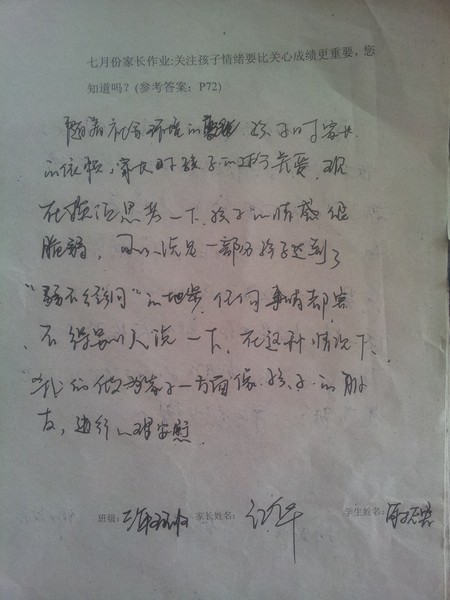 七月份家长作业:关注孩子情绪要比关心成绩更重要，您
知道吗？(参考答案：P72)
随着社会环境的 孩子对家长
的依赖，家长对孩子的 关爱，现
在 思考一下，孩子的情感很
脆弱，可以说是一部分孩子达到了
“弱不经风”的地步，任何事情都容
不得别人说一下，在这种情况下，
我们做为家长一方面像孩子的朋
友，进行心理安慰
班级： 家长姓名： 学生姓名：